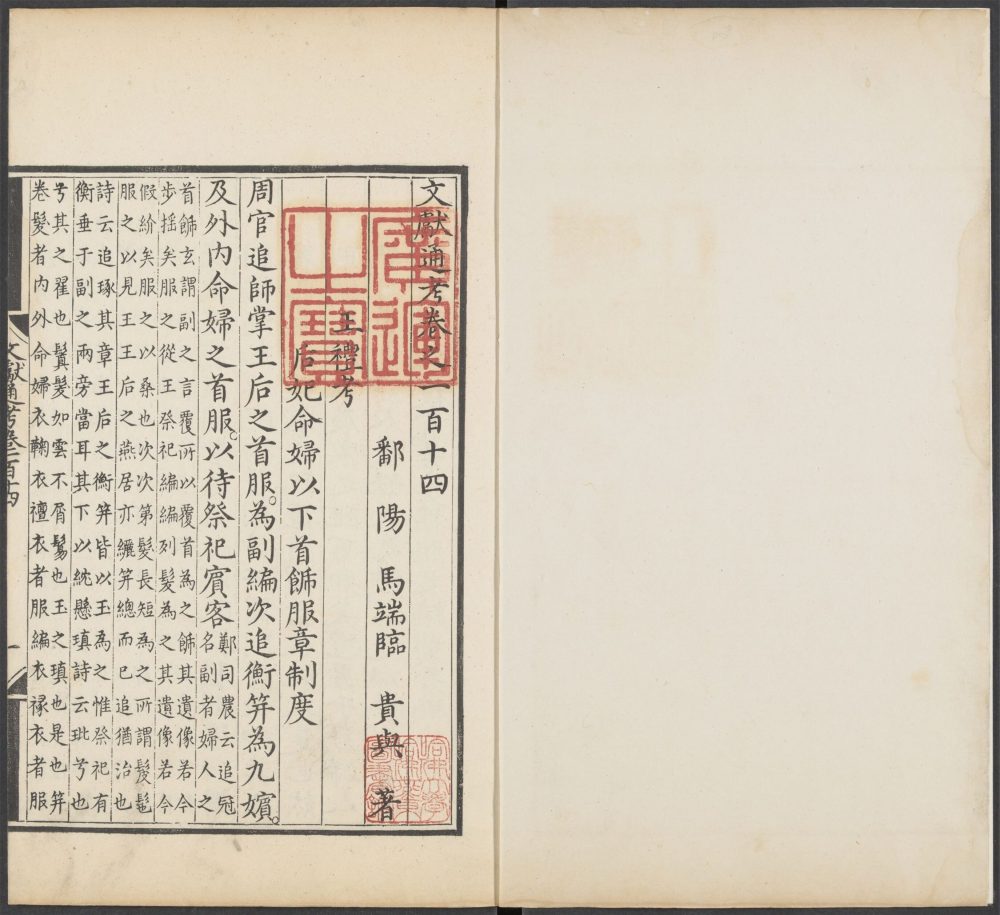 文獻通考卷之一百十四
鄱陽 馬端臨 貴與 著
王禮考
后妃命婦以下首飾服章制度
周官追師掌王后之首服。為副編次追衡笄為九嬪。
及外內命婦之首服。以待祭祀賓客
鄭司農云追冠
名副者婦人之
首飾玄謂副之言覆所以覆首為之飾其遺像若今
步摇矣服之從王祭祀編編列髮為之其遺像若今
假紒矣服之以桑也次次第髮長短為之所謂髲髢
服之以見王王后之燕居亦纚笄總而已追猶治也
詩云追琢其章王后之衡笄皆以玉為之惟祭祀有
衡垂于副之兩旁當耳其下以紞懸瑱詩云玼兮也
兮其之翟也鬒髮如雲不屑鬄也玉之瑱也是也笄
卷髮者內外命婦衣鞠衣襢衣者服編衣褖衣者服
文獻通考卷一百十四
一
廣運之寶